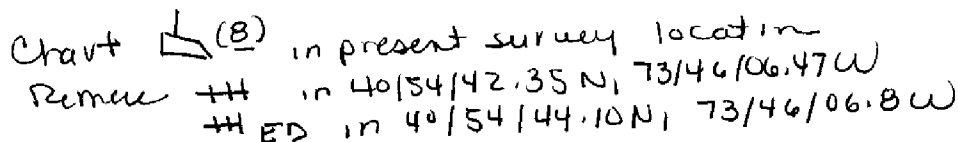 Chart (8) in present survey location
Remove in 40/54/42.35N, 73/46/06.47W
ED in 40/54/44.10N, 73/46/06.8W